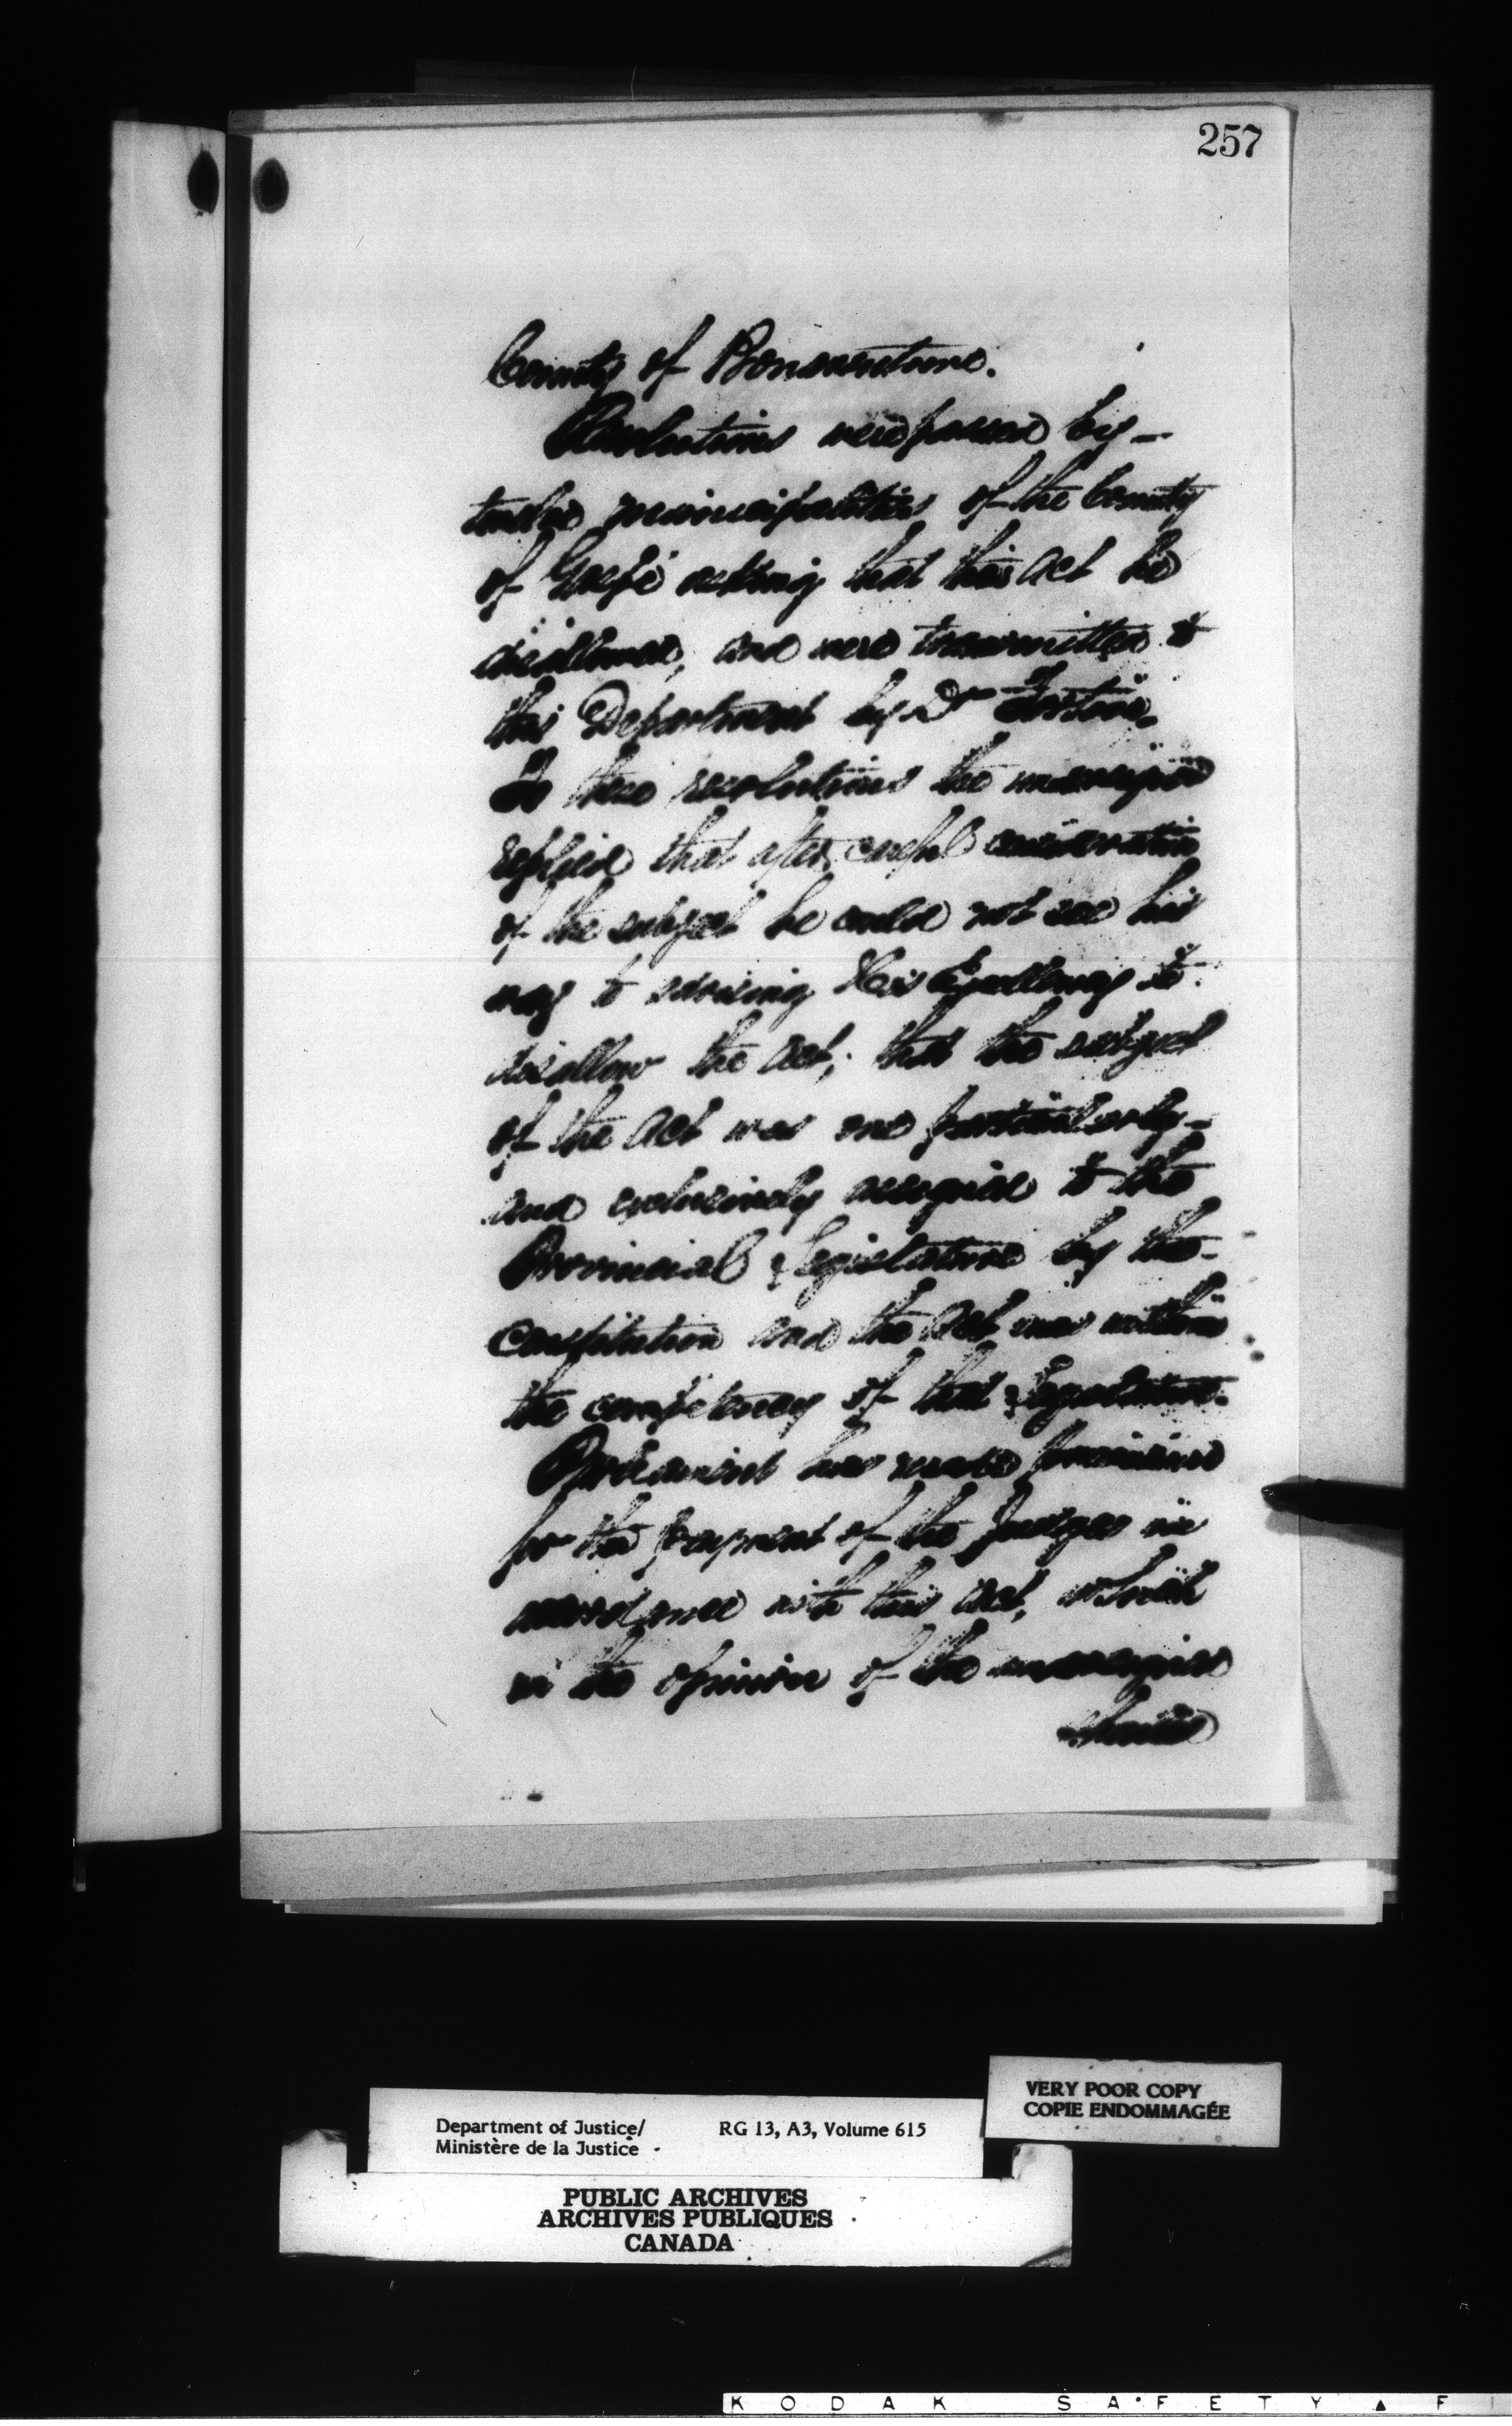 257
County of Bonaventure.
Resolutions were passed by
twelve municipalities of the County
of Gaspé asking that this Act be
disallowed, and were transmitted to
this Department by Dr Fortin.
To these resolutions the undersigned
replied that after careful consideration
of the subject he could not see his
way to advising His Excellency to
disallow the Act; that the subject
of the Act was one particularly
and exclusively assigned to the
Provincial Legislature by the
constitution and the Act was within
the competency of that Legislature.
Parliament has made provision
for the payment of the Judges in
accordance with this Act, which
in the opinion of the undersigned
should
VERY POOR COPY
COPIE ENDOMMAGÉE
Department of Justice/ RG 13, A3, Volume 615
Ministère de la Justice
PUBLIC ARCHIVES
ARCHIVES PUBLIQUES
CANADA
KODAK SAFETY ▲ F